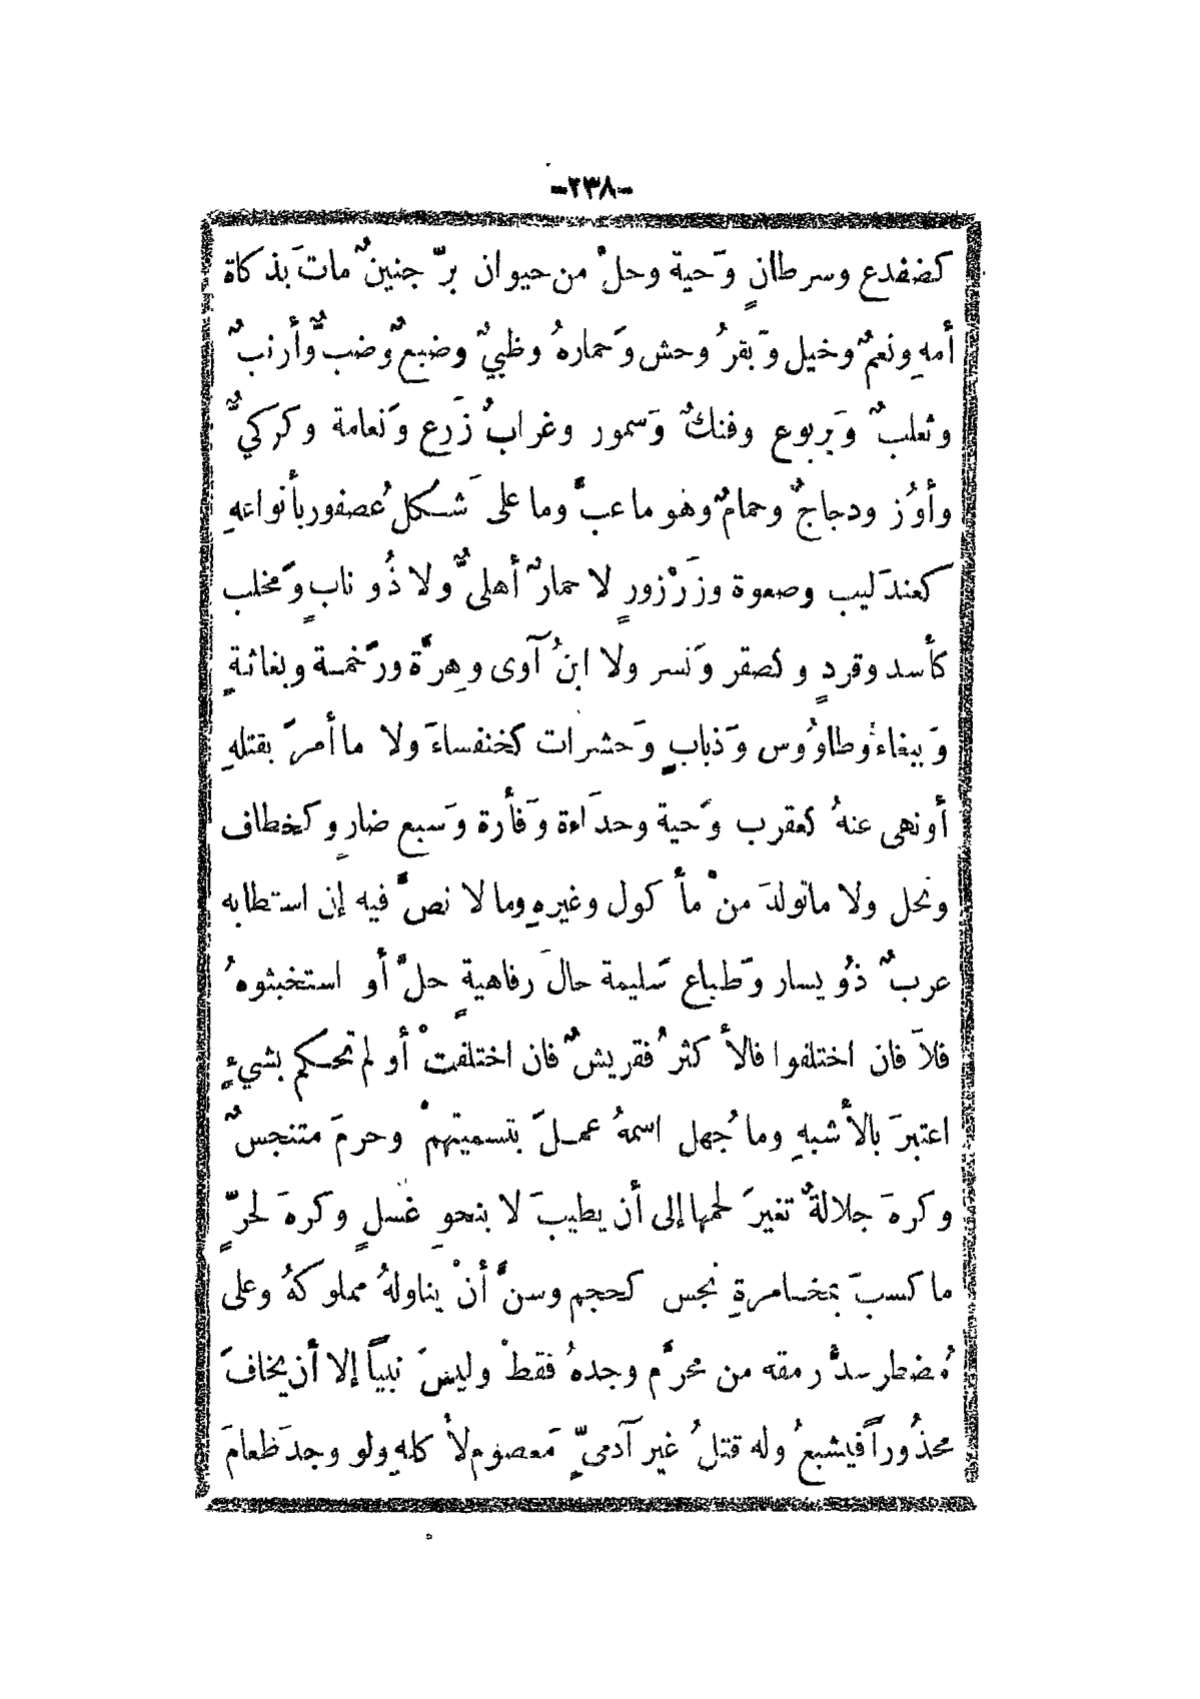 -٢٣٨-
كضفدع وسرطانٍ وَحية وحلْ من حيوان برّ جنينٌ ماتَ بذكاة
أمهِ ونعمٌ وخيل وَبقرُ وحش وَحمارهُ وظبيٌ وضبعٌ وضبٌّ وأرنبٌ
وثعلبٌ وَيربوع وفنكٌ وَسمور وغرابُ زَرع وَنعامة وكركيٌّ
وأوُز ودجاجٌ وحمامٌ وهو ما عبَّ وما على شَكل عُصفور بأنواعهِ
كعندَليب وصعوة وزَرْزورٍ لا حمارٌ أهليٌّ ولا ذُو نابٍ وَمخلب
كأسد وقردٍ وكصقر وَنسر ولا ابنُ آوى وهِرَّة ورَخمة وبغاثةٍ
وَببغاء وطاوُوس وَذبابٍ وَحشرات كخنفساءَ ولا ما أمرَ بقتلهِ
أو نهى عنهُ كعقرب وَحية وحدَاءة وَفأرة وَسبع ضارٍ وكخطاف
ونحل ولا ما تولدَ منْ مأكول وغيرهِ وما لا نصَّ فيه إن استطابه
عربٌ ذُو يسار وَطباع سَليمة حالَ رفاهيةٍ حلَّ أو استخبثوهُ
فلاَ فان اختلفوا فالأكثرُ فقريشٌ فان اختلفتْ أو لم تحكم بشيءٍ
اعتبرَ بالأشبهِ وما جُهل اسمهُ عمـلَ بتسميتهمْ وحرمَ متنجسٌ
وكرهَ جلالةٌ تغيرَ لحمها إلى أن يطيبَ لا بنحوِ غسلٍ وكرهَ لحرٍّ
ما كسبَ بمخامرةِ نجس كحجم وسنَّ أنْ يناولهُ مملوكهُ وعلى
مُضطر سدُّ رمقه من محرَّم وجدهُ فقطْ وليسَ نبياً إلا أن يخافَ
محذُوراً فيشبعُ وله قتلُ غير آدميٍّ مَعصوم لأكلهِ ولو وجدَ طعامَ